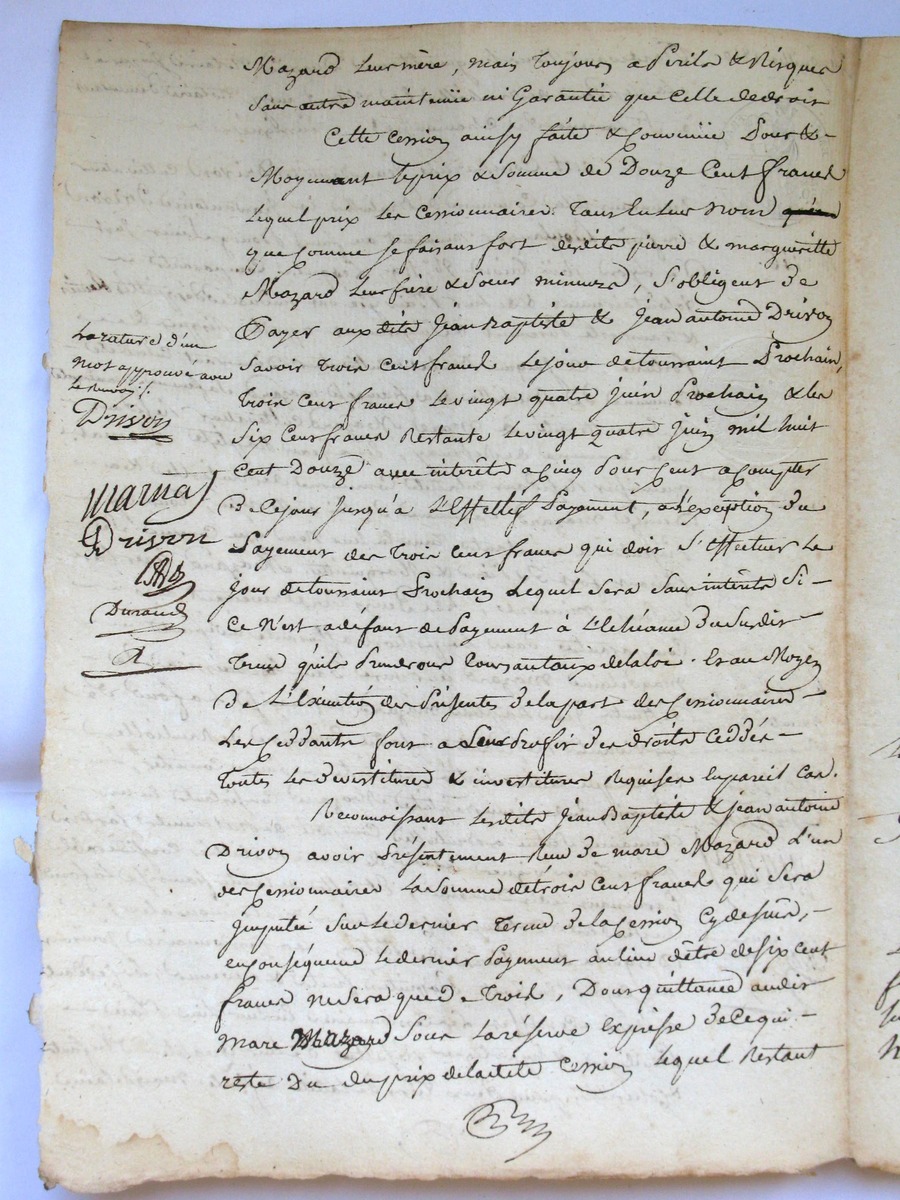 Mazard leur mère, mais toujours a Périls & Risques
sans autre maintenüe ni Garantie que Celle de droit
Cette Cession ainsy faite & Convenüe Pour &
Moyennant le prix & Somme de Douze Cent francs
lequel prix les Cessionnaires tant en leur Nom
que Comme se faisant fort desdits pierre & margueritte
Mazard leur frère & Soeur mineurs, s'obligent de
Payer auxdits Jean Baptiste & Jean antoine Drivon
Savoir trois cent francs le jour de toussaint Prochain,
trois cent francs le vingt quatre juin Prochain & les
Six Cent francs Restants le vingt quatre juin mil huit
Cent Douze avec intérêts a cinq pour cent a compter
de ce jour jusqu'à l'Effectif Payement, a l'exception du
Payement des trois Cent francs qui doit s'effectuer le
jour de toussaint Prochain lequel Sera Sans intérêts Si
Ce N'est a défaut de Payement à l'Echéance du Susdit
terme qu'ils prendront Cours au taux de la loi. Et au Moyen
de l'éxécution des Présentes de la part des Cessionnaires
les Ceddants font a Leur Profit des droits Ceddés
toutes les devestitures & investitures Requises en pareil Cas.
Reconnoissant lesdits Jean Baptiste & jean antoine
Drivon avoir Présentement Reçu de marc Mazard l'un
des Cessionnaires la Somme de trois Cent francs qui Sera
imputée Sur le dernier terme de la Cession Cy dessus,
en Conséquence le dernier Payement au lieu d'être de six cent
francs ne Sera que de Trois, Dont quittance audit
marc Mazard Sous la réserve expresse de Ce qui
reste Du du prix de ladite Cession lequel Restant
La rature d'un
mot approuvé avec
le Renvoy ./.
Drivon
Marnas
Drivon
Durand